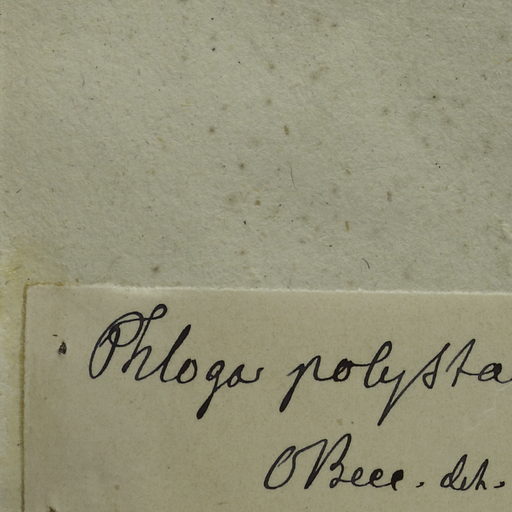 Phloga polysta
OBecc. det.